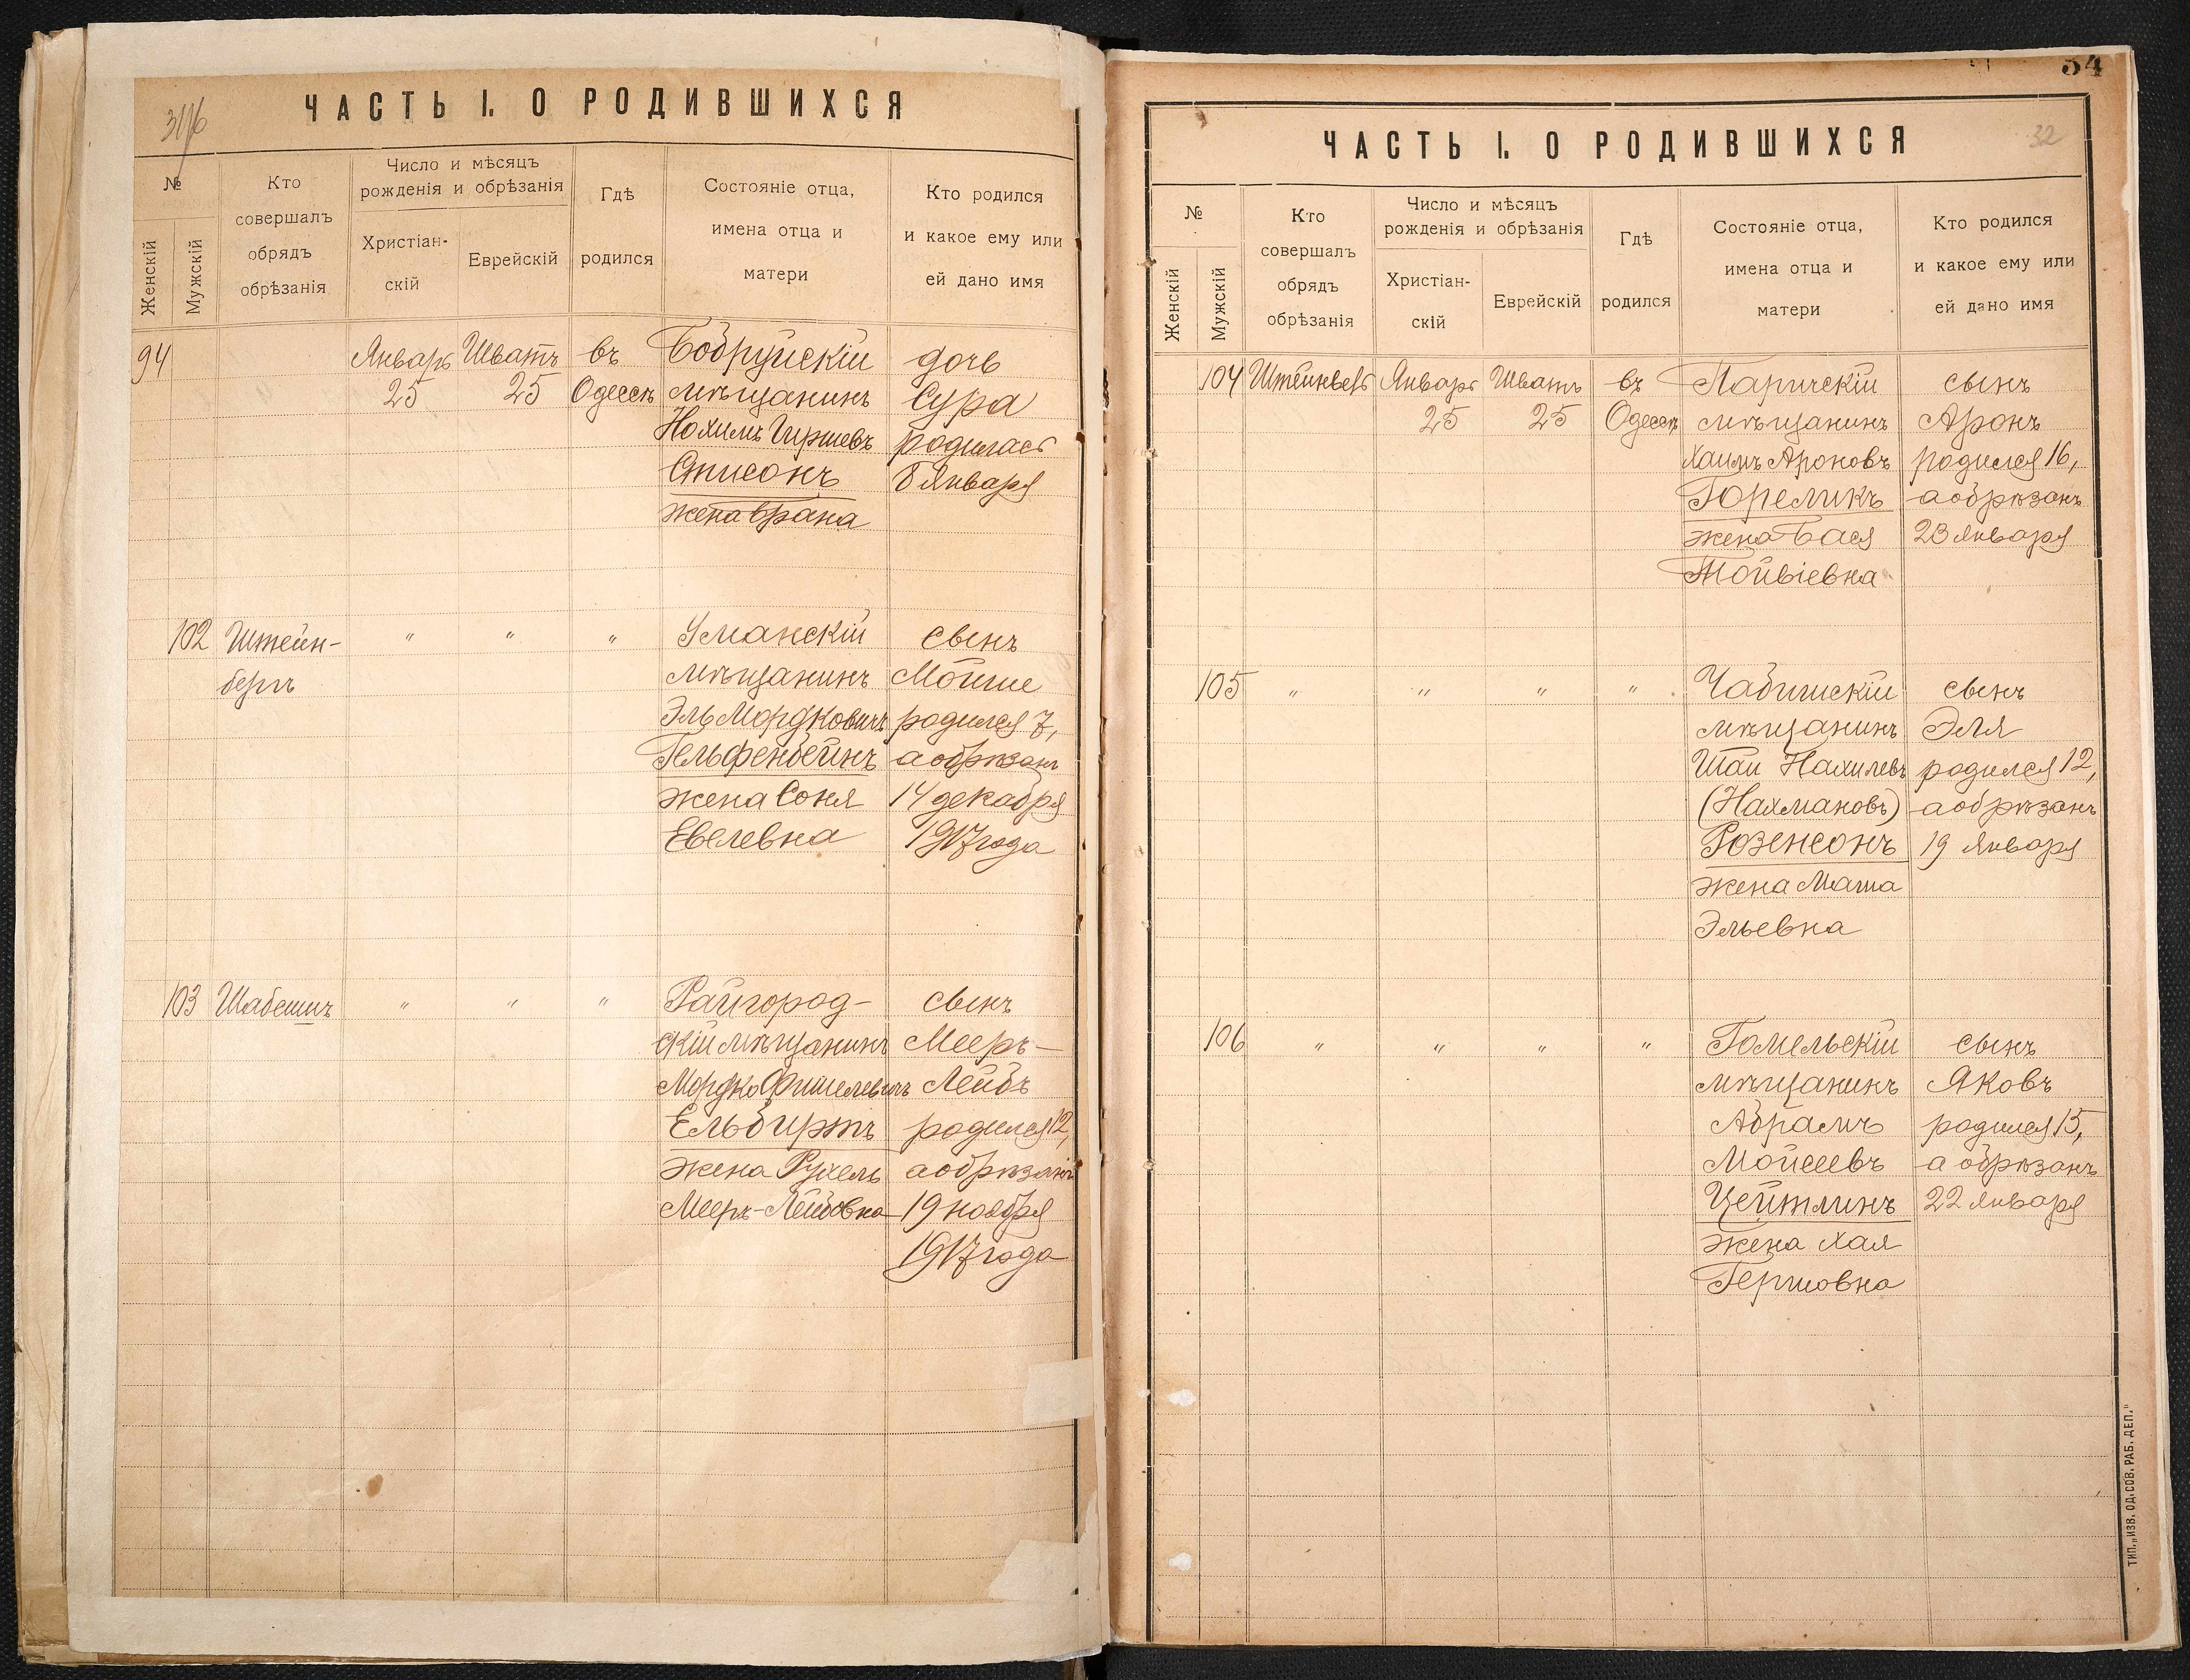 31/б
ЧАСТЬ I. О РОДИВШИХСЯ
№
Женскій
Мужскій
Кто
совершалъ
обрядъ
обрѣзанія
Число и мѣсяцъ
рожденія и обрѣзанія
Христіан-
скій
Еврейскій
Гдѣ
родился
Состояніе отца,
имена отца и
матери
Кто родился
и какое ему или
ей дано имя
94 Январь Шватъ въ Бобруйскій дочь
25 25 Одессѣ мѣщанинъ Сура
Нохимъ Гиршевъ родилась
Списокъ 8 Января
жена Брана
102 Штейн- " " " Уманскій сынъ
бергъ мѣщанинъ Мойше
Эль Мордковичъ родился 7,
Гельфенбейнъ а обрѣзанъ
жена Соня 14 декабря
Евелевна 1917 года
103 Шабсинъ " " " Райгород- сынъ
скій мѣщанинъ Мееръ-
Мордко Фишелевичъ Лейбъ
Ельбиртъ родился 12,
жена Рухель а обрѣзанъ
Мееръ-Лейбовна 19 ноября
1917 года
34
ЧАСТЬ I. О РОДИВШИХСЯ
32
№
Женскій
Мужскій
Кто
совершалъ
обрядъ
обрѣзанія
Число и мѣсяцъ
рожденія и обрѣзанія
Христіан-
скій
Еврейскій
Гдѣ
родился
Состояніе отца,
имена отца и
матери
Кто родился
и какое ему или
ей дано имя
104 Январь Шватъ въ Паричскій сынъ
25 25 Одессѣ мѣщанинъ Аронъ
Хаимъ Ароновъ родился 16,
Гореликъ а обрѣзанъ
жена Бася 23 Января
Тойвіевна
105 " " " " сынъ
мѣщанинъ Эля
Шаи Нахимовъ родился 12,
(Нахмановъ) а обрѣзанъ
Розенсонъ 19 Января
жена Маша
Эльевна
106 " " " " Гомельскій сынъ
мѣщанинъ Яковъ
Абрамъ родился 15,
Мойсеевъ а обрѣзанъ
Цейтлинъ 22 Января
жена Хая
Гершовна
ТИП. „ИЗВ. ОД. СОВ. РАБ. ДЕП."